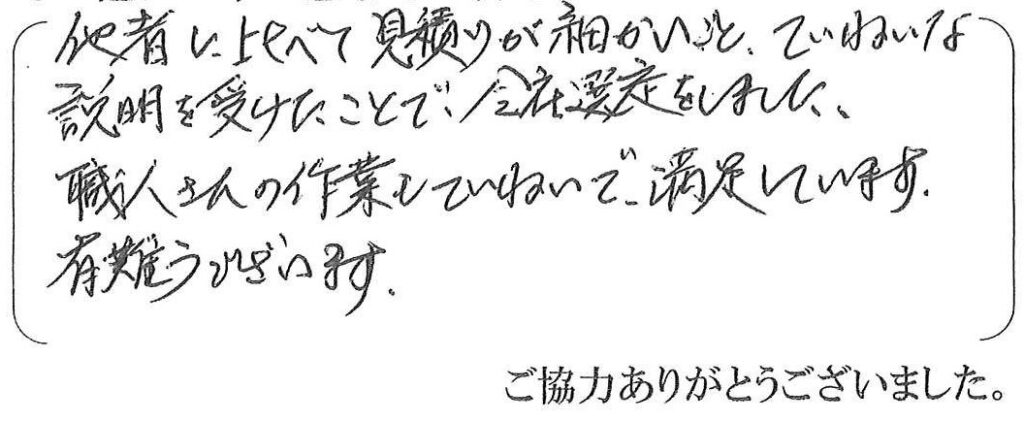 他者に比べて見積りが細かいと、ていねいな
説明を受けたことで、会社選定をしました、
職人さんの作業もていねいで、満足しています.
有難うございます.
ご協力ありがとうございました。